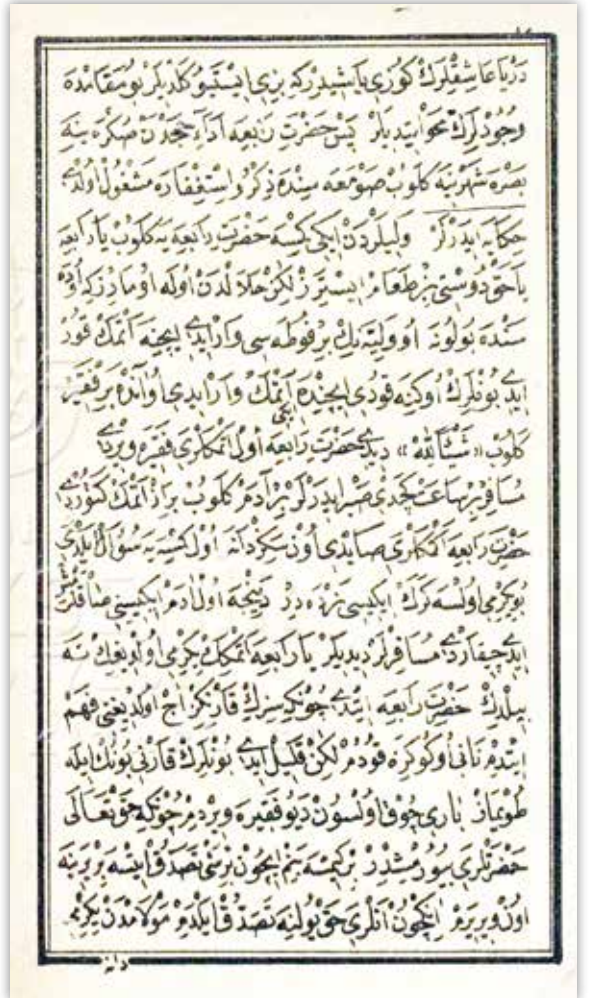 دريا عاشقلرك كوزى ياشيدركه بزى ايستيو كلديلر بو مقامده
وجودلرك محو ايتديلر پس حضرت رابعه اداء حجدن صكره ينه
بصره شهرينه كلوب صومعه سنده ذكر و استغفاره مشغول اولدى
حكايه ايدرلر وليلردن ايكى كسه حضرت رابعه يه كلوب يا رابعه
ياحق دوستى بز طعام ايسترز لكن حلالدن اوله اومارز كه اوده
سنده بولونه اول وليه نك بر فوطه سى وارايدى ايچنه اتمك قور
ايدى بونلرك اوكنه قودى ايچنده ايكى اتمك وارايدى اواندە بر فقير
كلوب «شيئا لله» ديدى حضرت رابعه اول اتمكلرى فقيره ويردى
مسافرلر ساعت كچدى صبر ايدرلر بر آدم كلوب براز اتمك كتوردى
حضرت رابعه اتمكلرى صايدى اون سكز دانه اول كسيه سؤال ايلدى
بو يكرمى اولسه كرك ايكيسى نره ده در دينجه اول ادم ايكيسنى صاقلامش
ايدى چيقاردى مسافرلر ديديلر يا رابعه اتمكك يكرمى اولديغك نه
بيلدك حضرت رابعه ايتدى چونكه سزك قارنكز اج اولديغنى فهم
ايتدم نانى اوكوكزه قودم لكن قليل ايدى بونلرك قارنى بونك ايله
طويماز بارى چوق اولسون ديو فقيره ويردم چونكه حق تعالى
حضرتلرى بيورمشدر بر كيمسه بنم ايچون برشى تصدق ايتسه بر يرينه
اون ويررم ايچون انلرى حق يولنه تصدق ايلدم مولامدن يكرمى
دانه